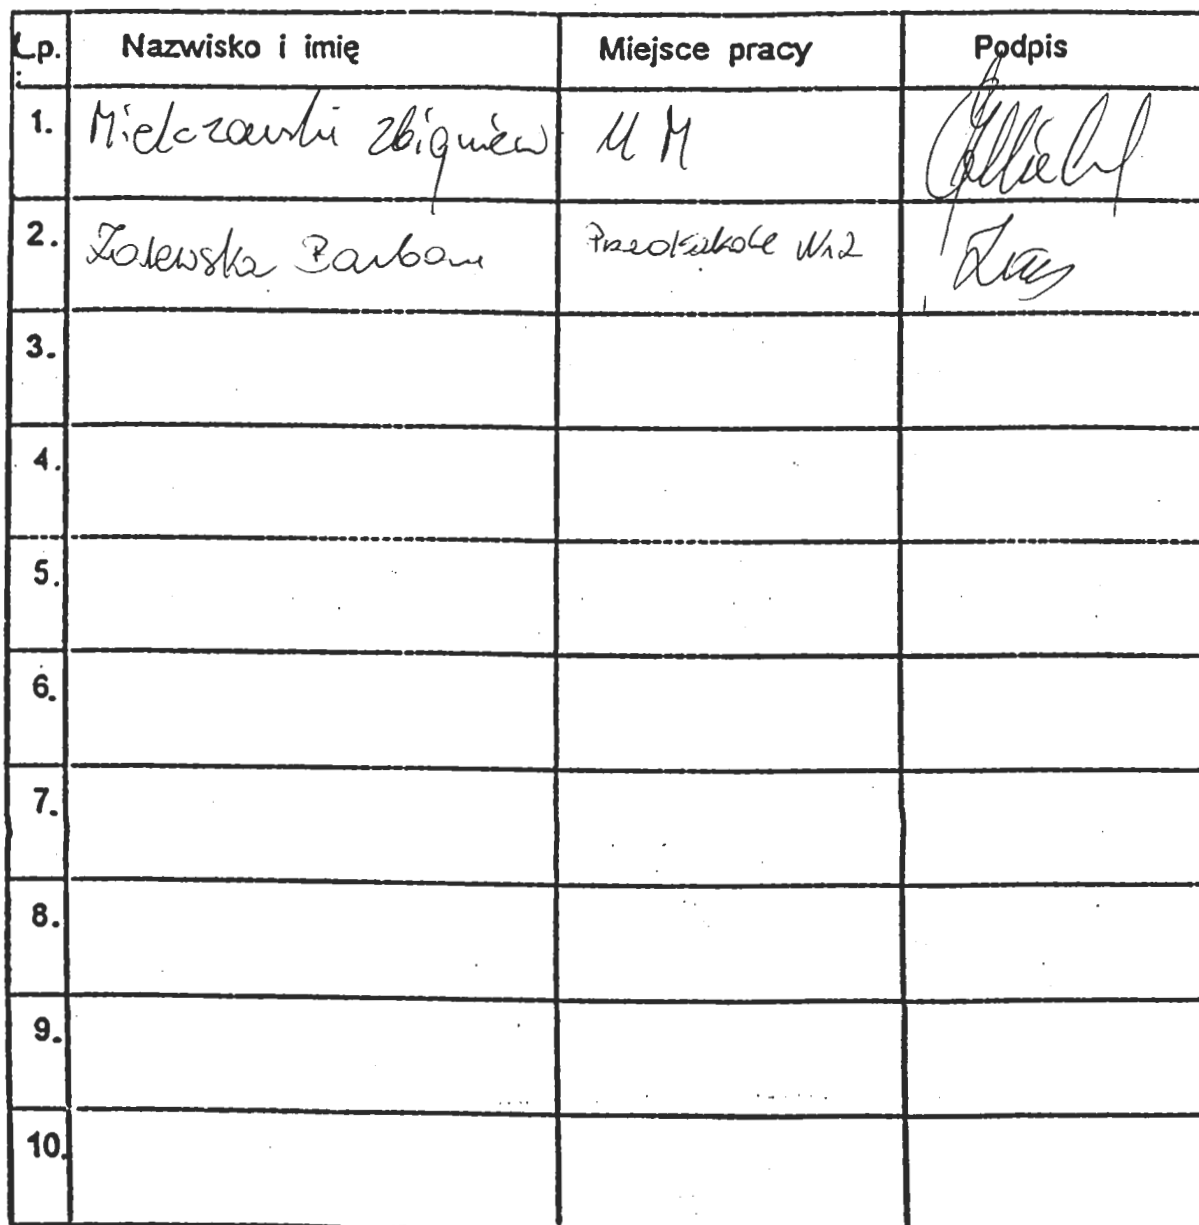 Lp. Nazwisko i imię Miejsce pracy Podpis
1. Mielczarski Zbigniew UM
2. Zalewska Barbara Przedszkole Nr 2
3.
4.
5.
6.
7.
8.
9.
10.